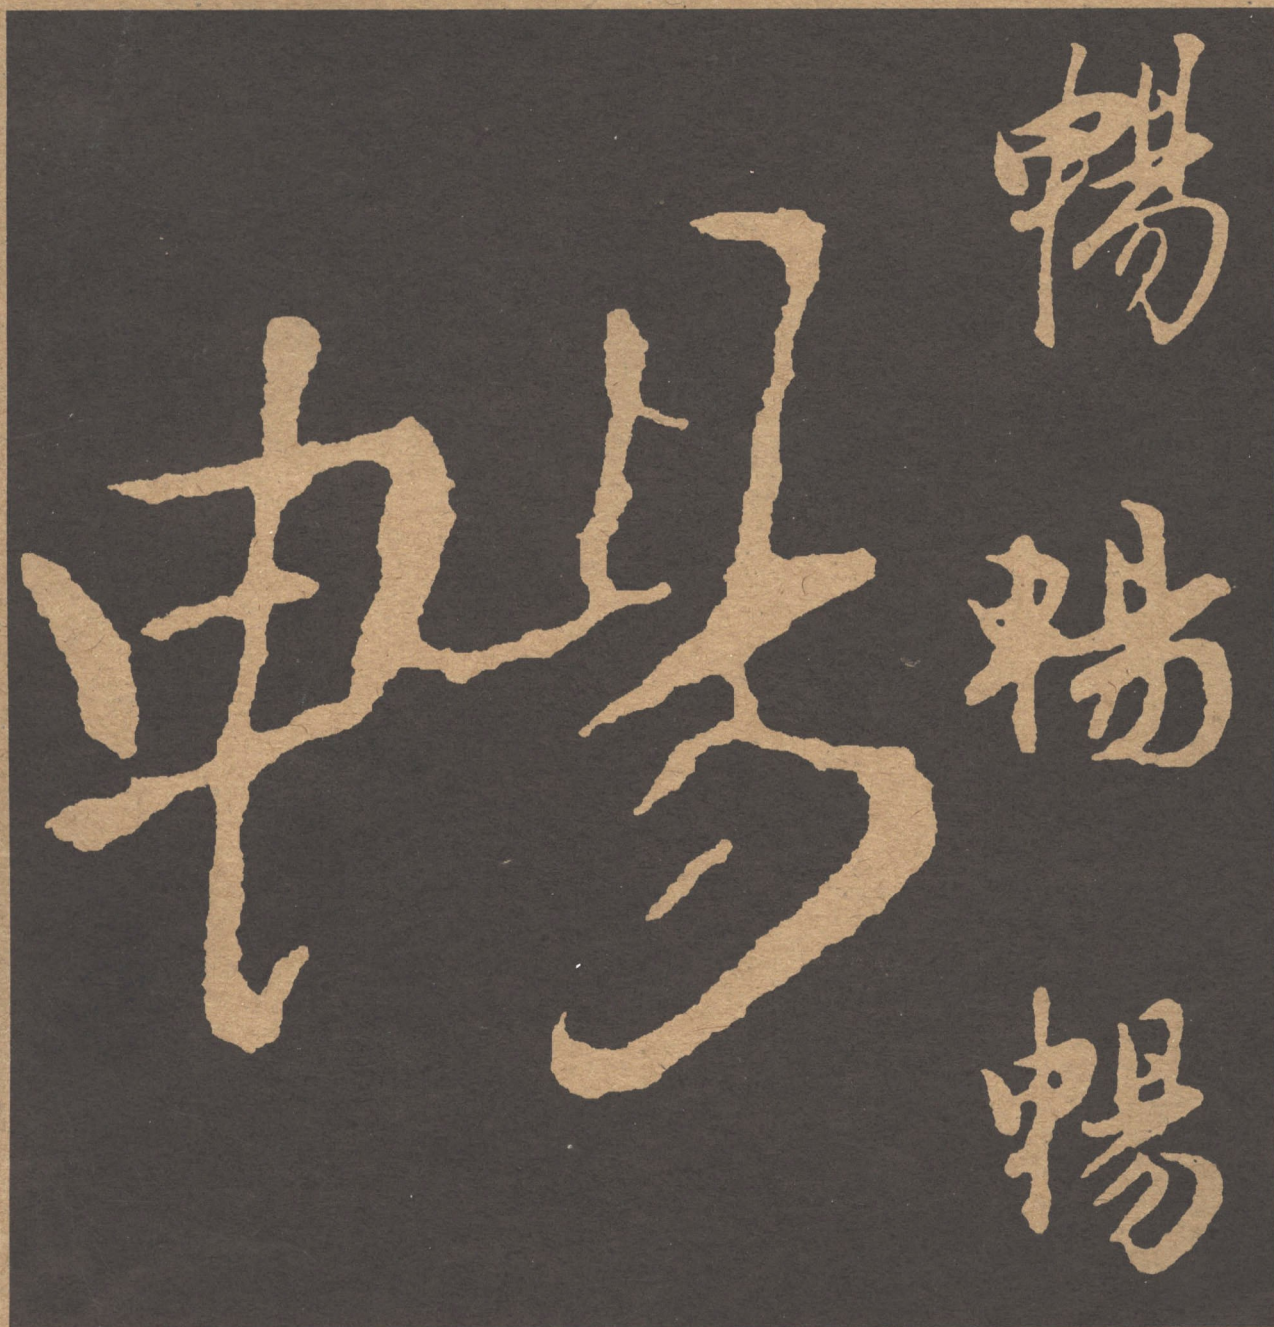 暢
暢
暢
暢